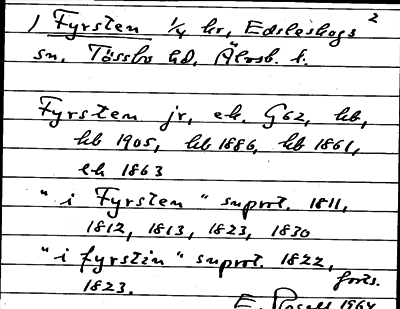 2
) Fyrsten 1/4 hr, Edsleskogs
sn, Tössbo hd, Älvsb. l.
Fyrsten jr, ek. G62, hb,
hb 1905, hb 1886, hb 1861,
ek 1863
"i Fyrsten" suprot. 1811,
1812, 1813, 1823, 1830
"i fyrstin" suprot. 1822,
1823. forts.
E. 1964